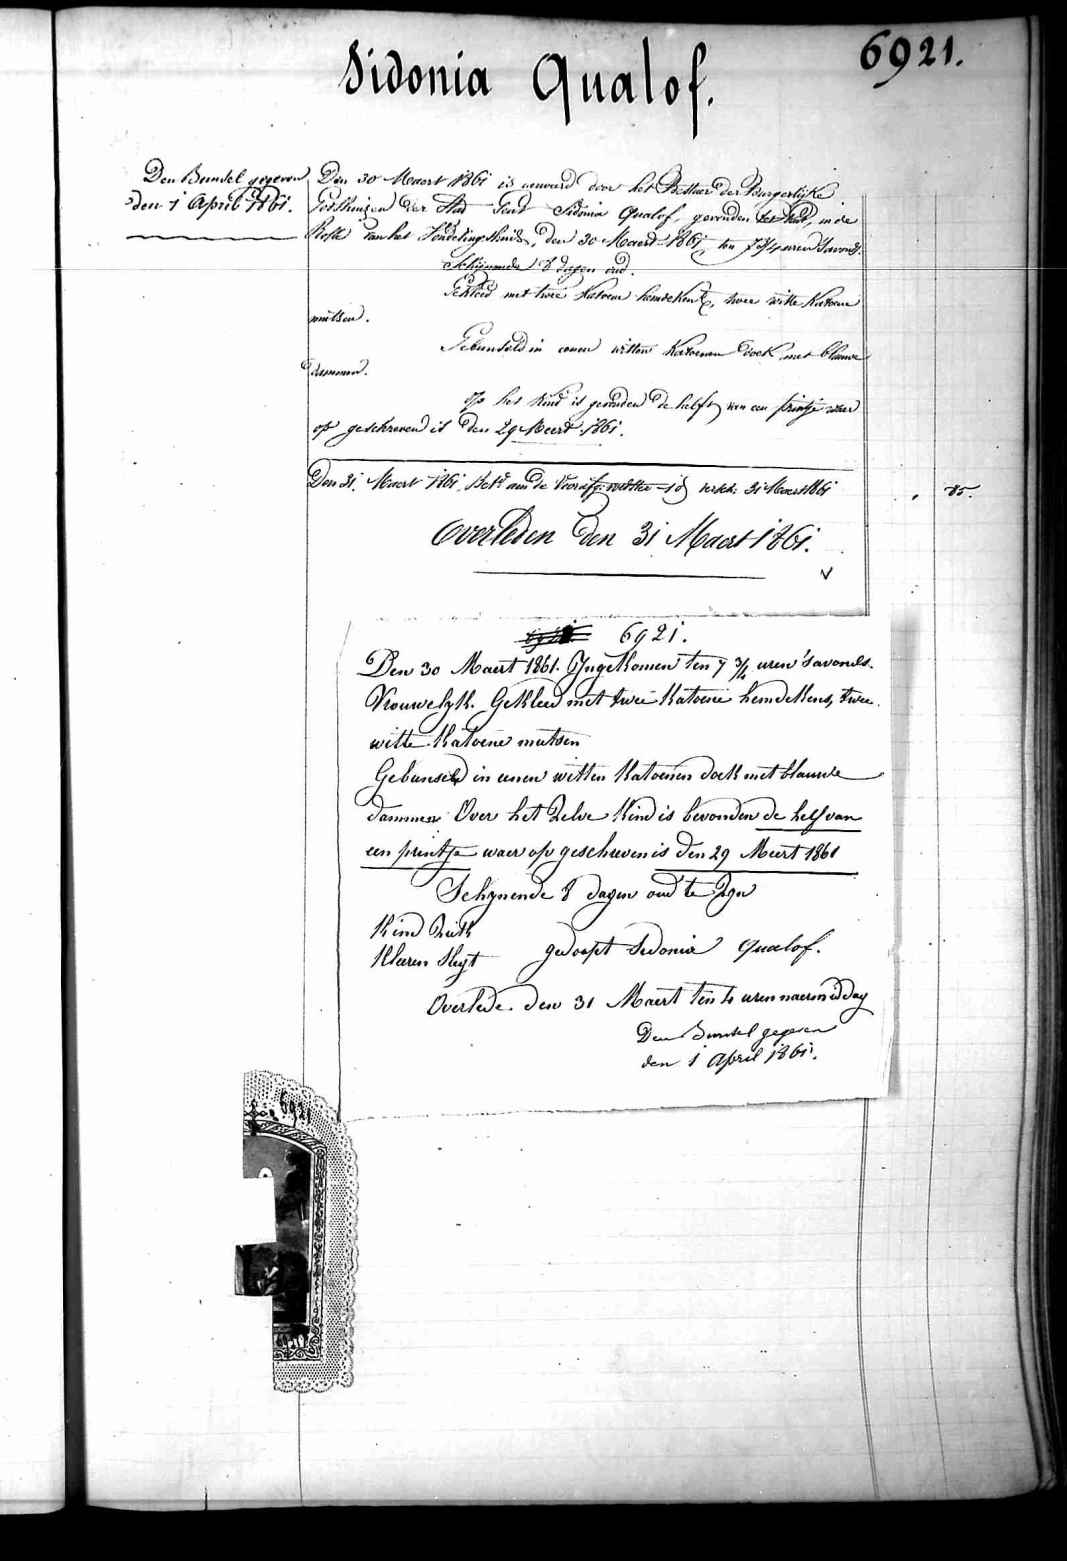 6921.
Sidonia Qualof.
Den Bunsel gegeven
den 1 April 1861.
Den 30 Maert 1861 is aenveerd door het Bestier der Burgerlijke
Godshuizen der Stad Gent Sidonia Qualof, gevonden in de
Rolle van het Vondelingshuis, den 30 Maert 1861, ten 7 3/4 uren 's avonds.
Schijnende 8 dagen oud.
Gekleed met twee Katoene hemdekens, twee witte Katoene
mutsen.
Gebunseld in eenen witten Katoenen doek met blauwe
dammen.
Op het kind is gevonden de helft van een printje waer
op geschreven is den 29 Meert 1861.
Den 31 Maert 1861 Betd aen de 31 Maert 1861 85.
Overleden den 31 Maert 1861.
6921.
Den 30 Maert 1861. Yngekomen ten 7 3/4 uren 's avonds.
Vrouwelyk. Gekleed met twee Katoene hemdekens, twee
witte Katoene mutsen
Gebunseld in eenen witten Katoenen doek met blauwe
dammen Over het Zelve Kind is bevonden de helf van
een printje waer op geschreven is den 29 Meert 1861
Schynende 8 dagen oud te Zyn
Kind Ziek
Kleeren slegt gedoopt Sidonia Qualof.
Overlede. den 31 Maert ten 4 uren naermiddag
Den Bunsel gegeven
den 1 April 1861.
6921